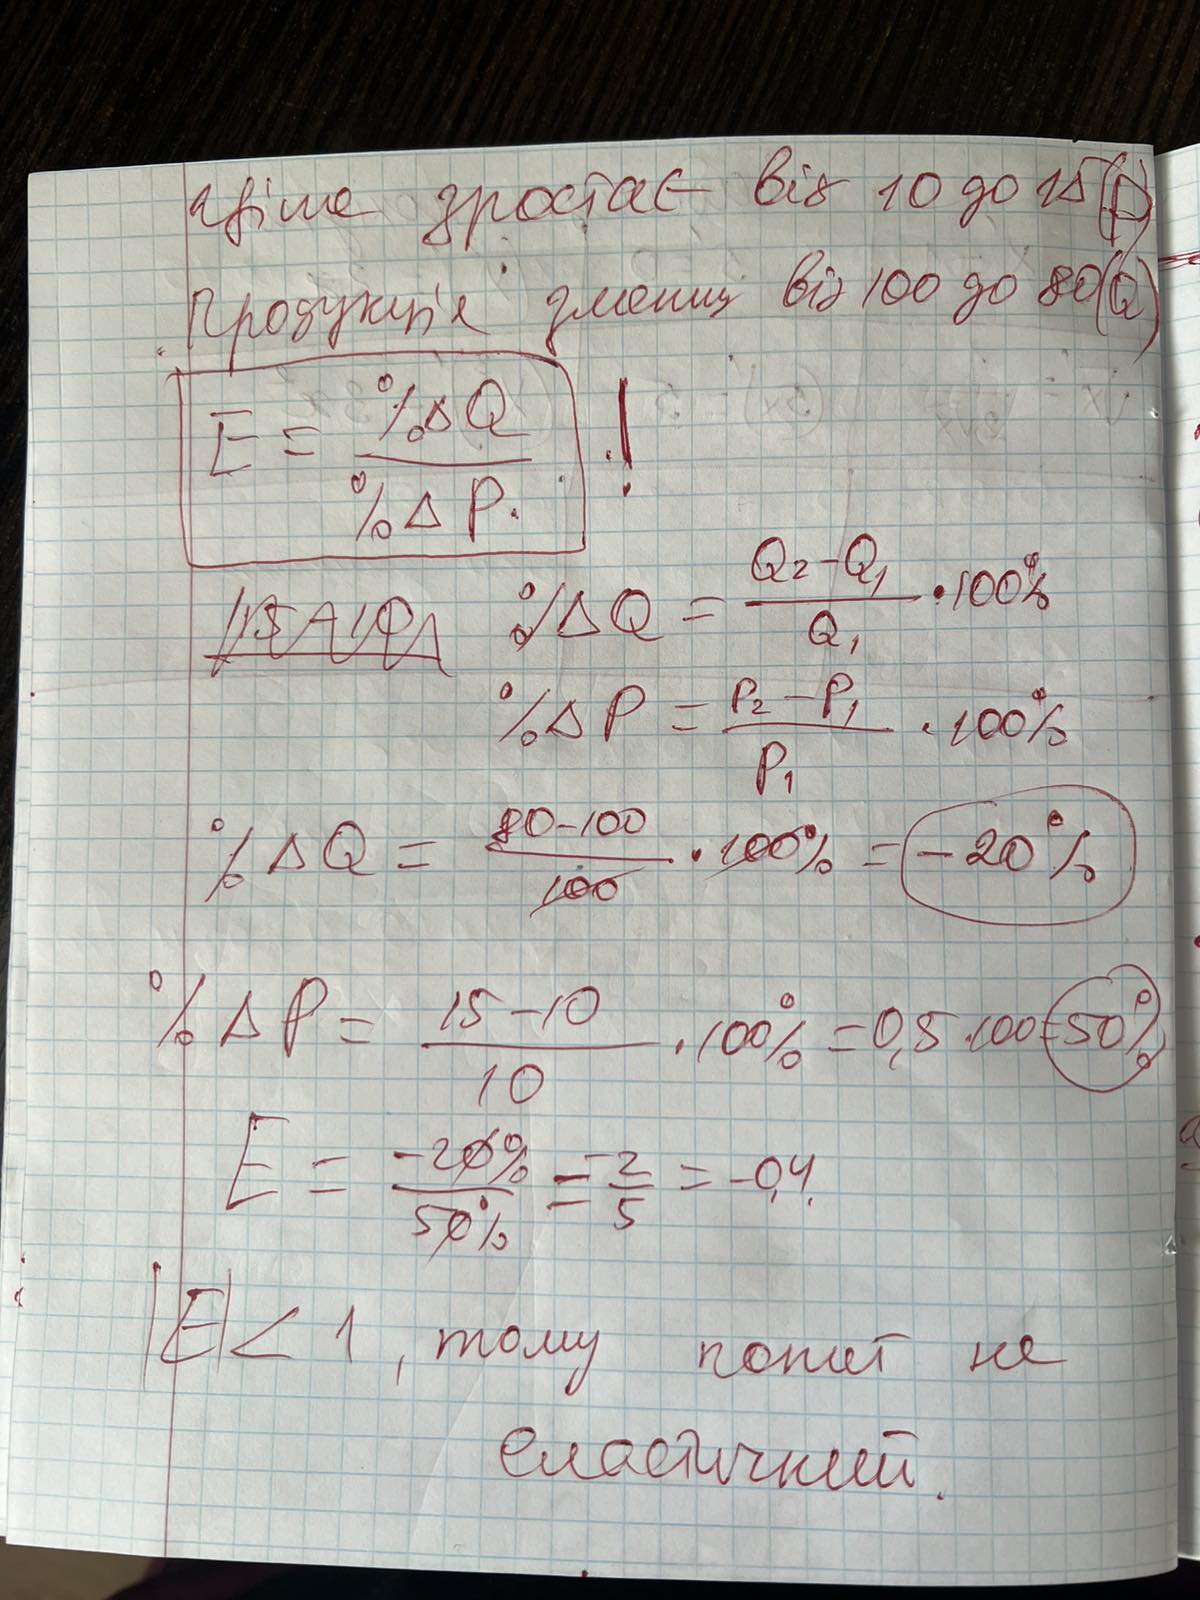 ціна зростає від 10 до 15(P)
продукція зменш від 100 до 80(Q)
E = %ΔQ / %ΔP. !
%ΔQ = Q₂-Q₁ / Q₁ · 100%
%ΔP = P₂-P₁ / P₁ · 100%
%ΔQ = 80-100 / 100 · 100% = -20%
%ΔP = 15-10 / 10 · 100% = 0,5 · 100 = 50%
E = -20% / 50% = -2 / 5 = -0,4.
|E| < 1, тому попит не
еластичний.